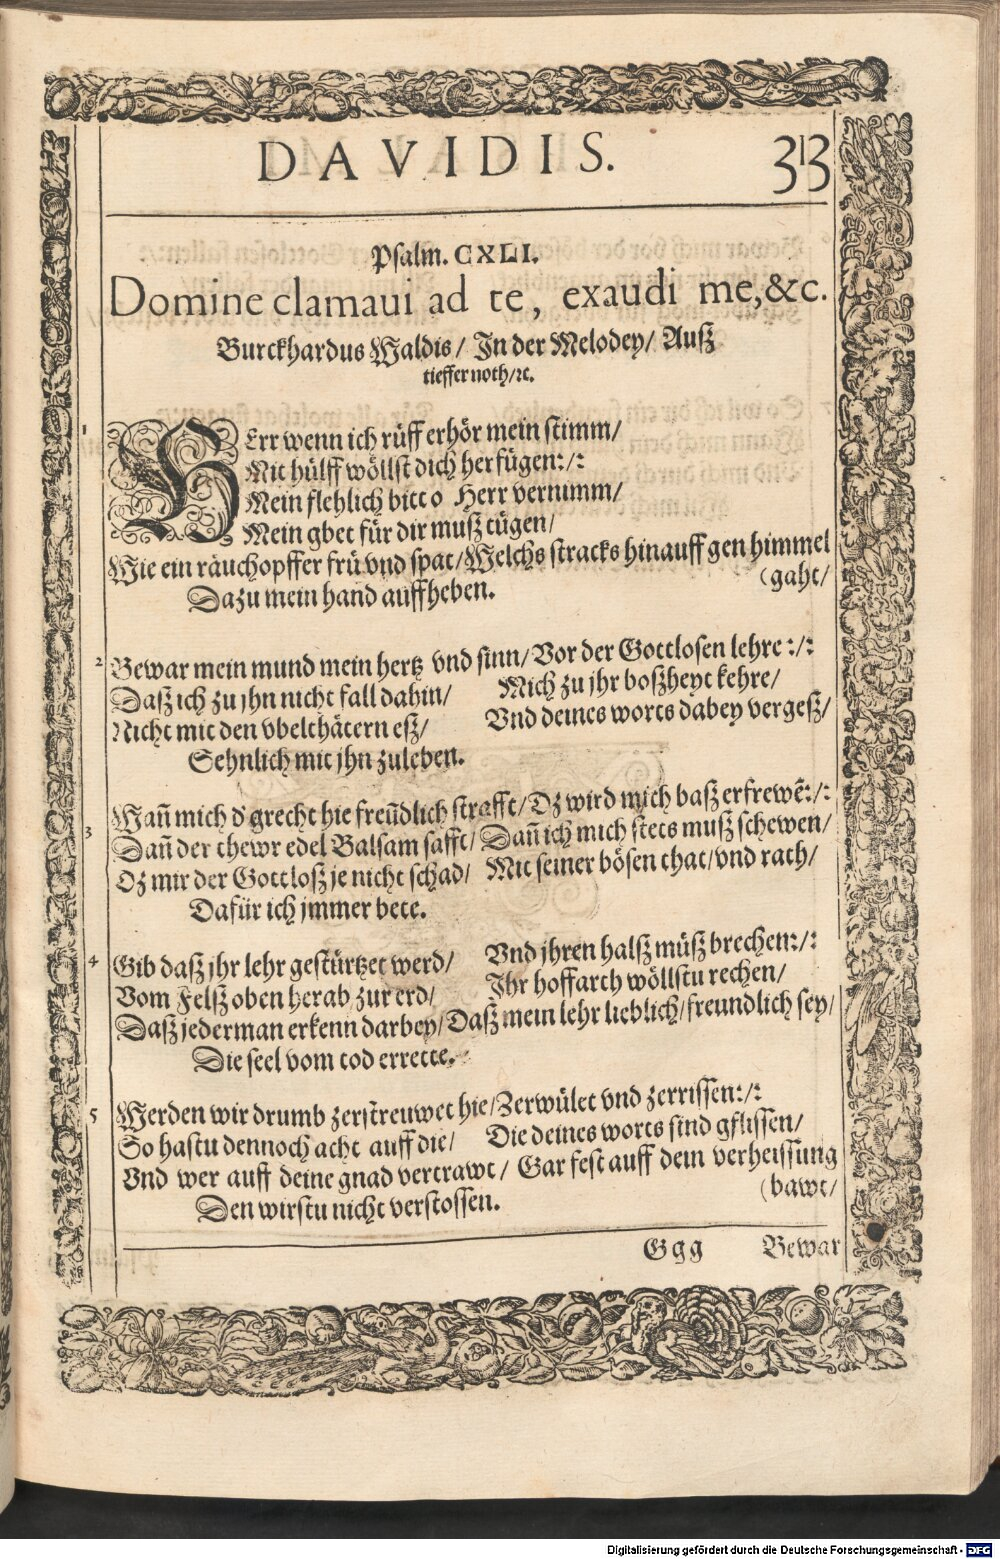 DAVIDIS. 313
Psalm. CXLI.
Domine clamaui ad te, exaudi me, &c.
Burckhardus Waldis/ In der Melodey/ Auß
tieffer noth/ꝛc.
1 HErr wenn ich rüff erhör mein stimm/
Mit hülff wöllst dich herfügen:/:
Mein flehlich bitt o Herr vernimm/
Mein gbet für dir muß tügen/
Wie ein räuchopffer frü vnd spat/ Welchs stracks hinauff gen himmel
(gaht/
Dazu mein hand auffheben.
2 Bewar mein mund mein hertz vnd sinn/ Vor der Gottlosen lehre:/:
Daß ich zu jhn nicht fall dahin/ Mich zu jhr boßheyt kehre/
Nicht mit den vbelthätern eß/ Vnd deines worts dabey vergeß/
Sehnlich mit jhn zuleben.
3 Wañ mich d' grecht hie freũdlich strafft/ Dz wird mich baß erfrewẽ:/:
Dañ der thewr edel Balsam safft/ Dañ ich mich stets muß schewen/
Dz mir der Gottloß je nicht schad/ Mit seiner bösen that/ vnd rath/
Dafür ich jmmer bete.
4 Gib daß jhr lehr gestürtzet werd/ Vnd jhren halß müß brechen:/:
Vom Felß oben herab zur erd/ Ihr hoffarth wöllstu rechen/
Daß jederman erkenn darbey/ Daß mein lehr lieblich/ freundlich sey/
Die seel vom tod errette.
5 Werden wir drumb zerstreuwet hie/ Zerwület vnd zerrissen:/:
So hastu dennoch acht auff die/ Die deines worts sind gflissen/
Vnd wer auff deine gnad vertrawt/ Gar fest auff dein verheissung
(bawt/
Den wirstu nicht verstossen.
Ggg Bewar
Digitalisierung gefördert durch die Deutsche Forschungsgemeinschaft - DFG